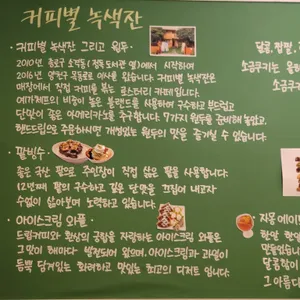 커피별 녹색잔
· 커피별 녹색잔 그리고 원두
2010년 종로 소격동(정독도서관 옆)에서 시작하여
2016년 양천구 목동로로 이사를 왔습니다. 커피별 녹색잔은
매장에서 직접 커피를 볶는 로스터리 카페입니다.
에가체프의 비율이 높은 블랜드를 사용하여 구수하고 부드럽고
단맛이 깊은 아메리카노를 추구합니다. 7가지 원두를 준비해 놓았고,
핸드드립으로 주문하시면 개성있는 원두의 맛을 즐기실 수 있습니다.
· 팥빙수
좋은 국산 팥으로 주인장이 직접 삶은 팥을 사용합니다.
12년째 팥의 구수하고 깊은 단맛을 끄집어 내고자
수없이 삶아보며 노력하고 있습니다.
· 아이스크림 와플
드립커피와 환상의 궁합을 자랑하는 아이스크림 와플은
그 맛이 해마다 발전되어 왔으며, 아이스크림과 과일이
듬뿍 담겨있는 화려하고 맛있는 최고의 디저트 입니다.
소금쿠키는
소금쿠
· 자몽에이
맛들었습니
달콤함이
그 아름다